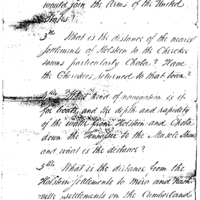 would join the Arms of the United
States?
3th What is the distance of the nearest
settlements of Holstein to the Cherokee
towns particularly Chota? Have
the Cherokees returned to that town?
4th What kind of navigation is it
for boats and the depth and rapidity
of the water from Holstein and Chota
down the Tennessee to the Muscle Shoals
and what is the distance?
5th What is the distance from the
Holstein settlements to Miro and Nash-
ville settlements on the Cumberland